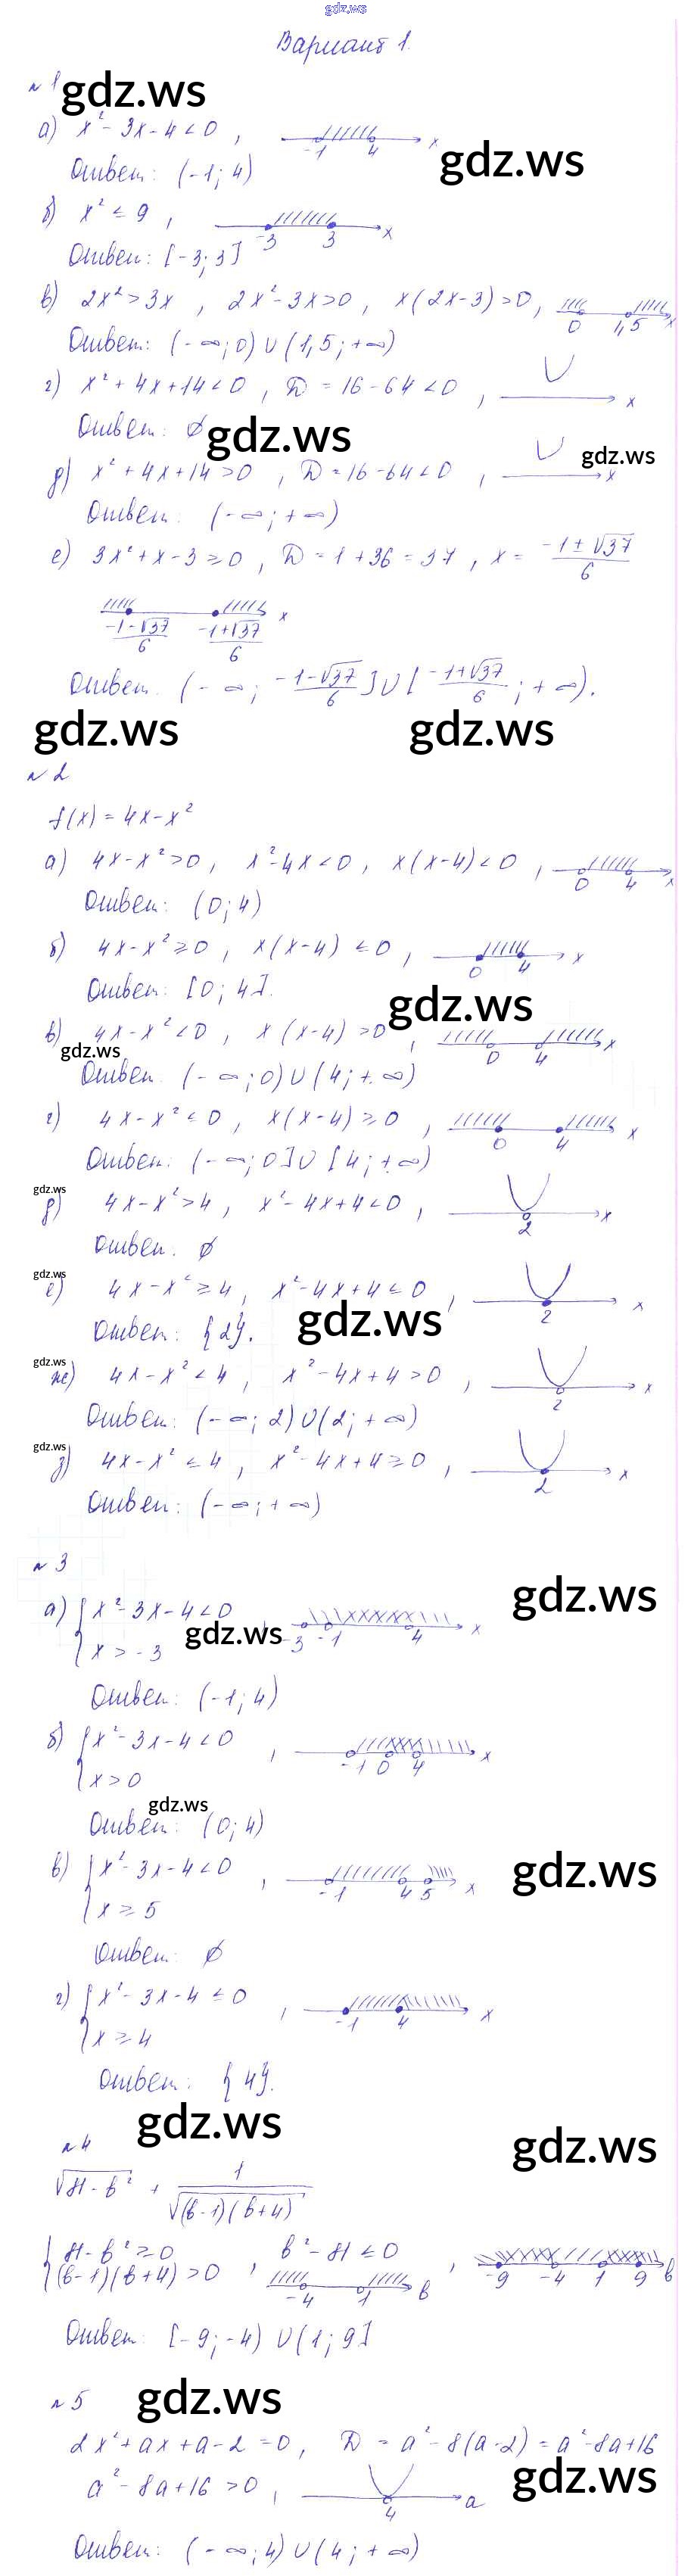 gdz.ws
Вариант 1.
№ 1
gdz.ws
а) x² - 3x - 4 < 0 , -1 4 x
gdz.ws
Ответ: (-1; 4)
б) x² ≤ 9 , -3 3 x
Ответ: [-3; 3]
в) 2x² > 3x , 2x² - 3x > 0 , x(2x-3) > 0 , 0 1,5 x
Ответ: (-∞; 0) ∪ (1,5; +∞)
г) x² + 4x + 14 < 0 , D = 16 - 64 < 0 , x
Ответ: ∅
gdz.ws
gdz.ws
д) x² + 4x + 14 > 0 , D = 16 - 64 < 0 , x
Ответ: (-∞; +∞)
е) 3x² + x - 3 ≥ 0 , D = 1 + 36 = 37 , x = (-1 ± √37)/6
(-1-√37)/6 (-1+√37)/6 x
Ответ: (-∞; (-1-√37)/6] ∪ [(-1+√37)/6; +∞).
gdz.ws gdz.ws
№ 2
f(x) = 4x - x²
а) 4x - x² > 0 , x² - 4x < 0 , x(x-4) < 0 , 0 4 x
Ответ: (0; 4)
б) 4x - x² ≥ 0 , x(x-4) ≤ 0 , 0 4 x
Ответ: [0; 4].
gdz.ws
в) 4x - x² < 0 , x(x-4) > 0 , 0 4 x
gdz.ws
Ответ: (-∞; 0) ∪ (4; +∞)
г) 4x - x² ≤ 0 , x(x-4) ≥ 0 , 0 4 x
Ответ: (-∞; 0] ∪ [4; +∞)
gdz.ws
д) 4x - x² > 4 , x² - 4x + 4 < 0 , 2 x
Ответ: ∅
gdz.ws
е) 4x - x² ≥ 4 , x² - 4x + 4 ≤ 0 , 2 x
gdz.ws
Ответ: {2}.
gdz.ws
ж) 4x - x² < 4 , x² - 4x + 4 > 0 , 2 x
Ответ: (-∞; 2) ∪ (2; +∞)
gdz.ws
з) 4x - x² ≤ 4 , x² - 4x + 4 ≥ 0 , 2 x
Ответ: (-∞; +∞)
№ 3
gdz.ws
а) { x² - 3x - 4 < 0 , -3 -1 4 x
gdz.ws
x > -3
Ответ: (-1; 4)
б) { x² - 3x - 4 < 0 , -1 0 4 x
x > 0
gdz.ws
Ответ: (0; 4)
в) { x² - 3x - 4 < 0 , -1 4 5 x
gdz.ws
x ≥ 5
Ответ: ∅
г) { x² - 3x - 4 ≤ 0 , -1 4 x
x ≥ 4
Ответ: {4}.
gdz.ws
№ 4
gdz.ws
√(81 - b²) + 1/√((b-1)(b+4))
{ 81 - b² ≥ 0 , b² - 81 ≤ 0 ,
(b-1)(b+4) > 0 -4 1 b -9 -4 1 9 b
Ответ: [-9; -4) ∪ (1; 9]
№ 5
gdz.ws
2x² + ax + a - 2 = 0 , D = a² - 8(a-2) = a² - 8a + 16
gdz.ws
a² - 8a + 16 > 0 , 4 a
Ответ: (-∞; 4) ∪ (4; +∞)